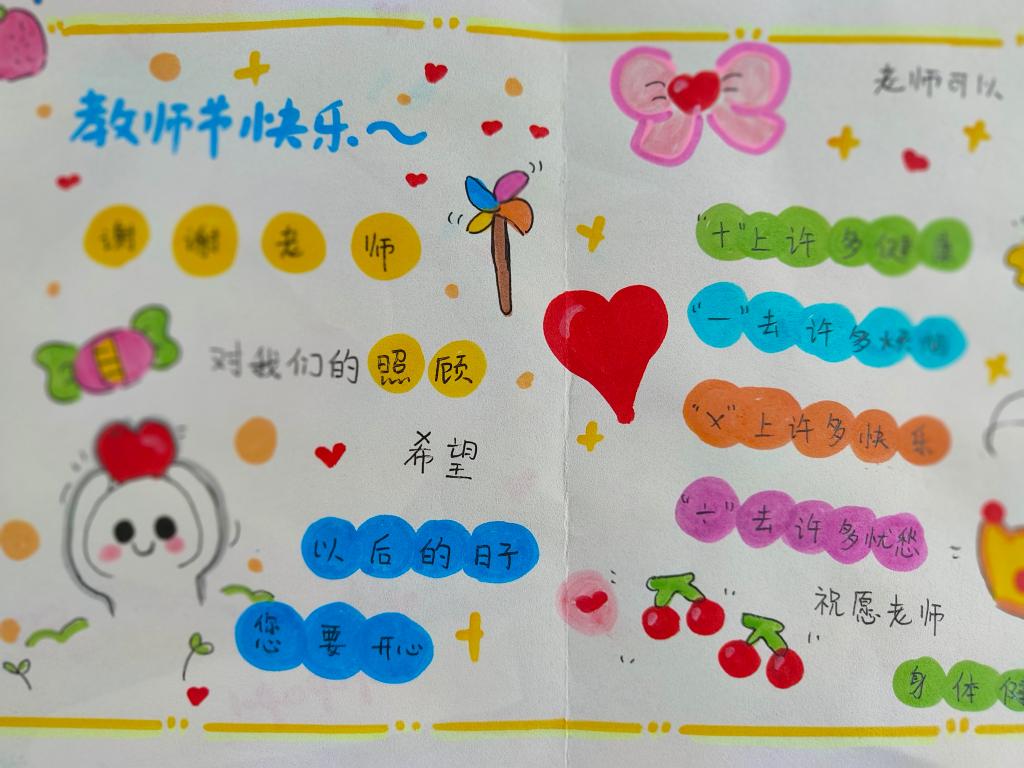 教师节快乐~
谢谢老师
对我们的照顾
希望
以后的日子
您要开心
老师可以
"十"上许多健康
"一"去许多烦恼
"×"上许多快乐
"÷"去许多忧愁
祝愿老师
身体健